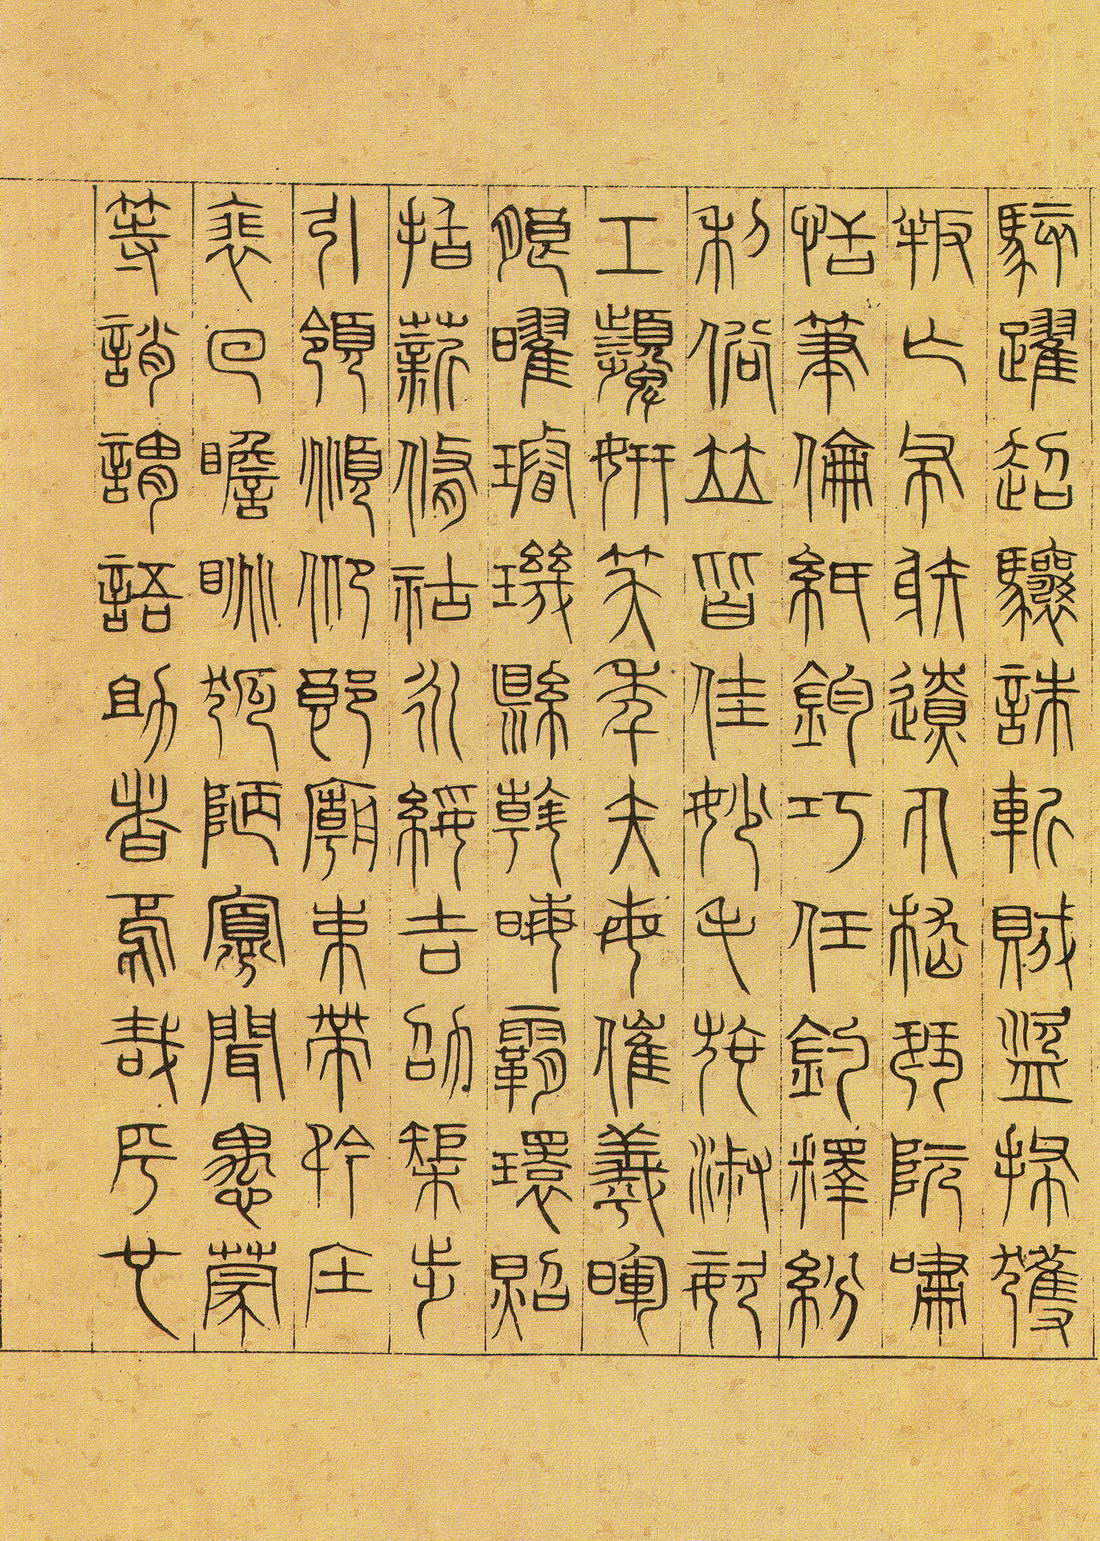 駭躍超驤誅斬賊盜捕獲
叛亡布射遼丸嵇琴阮嘯
恬筆倫紙鈞巧任釣釋紛
利俗竝皆佳妙毛施淑姿
工顰妍笑年矢每催羲暉
朗曜璿璣縣斡晦霸環照
指薪脩祜永綏吉劭矩步
引領頫仰郎廟束帶矜庄
裵回瞻眺孤陋寡聞愚蒙
等誚謂語助者焉哉乎也